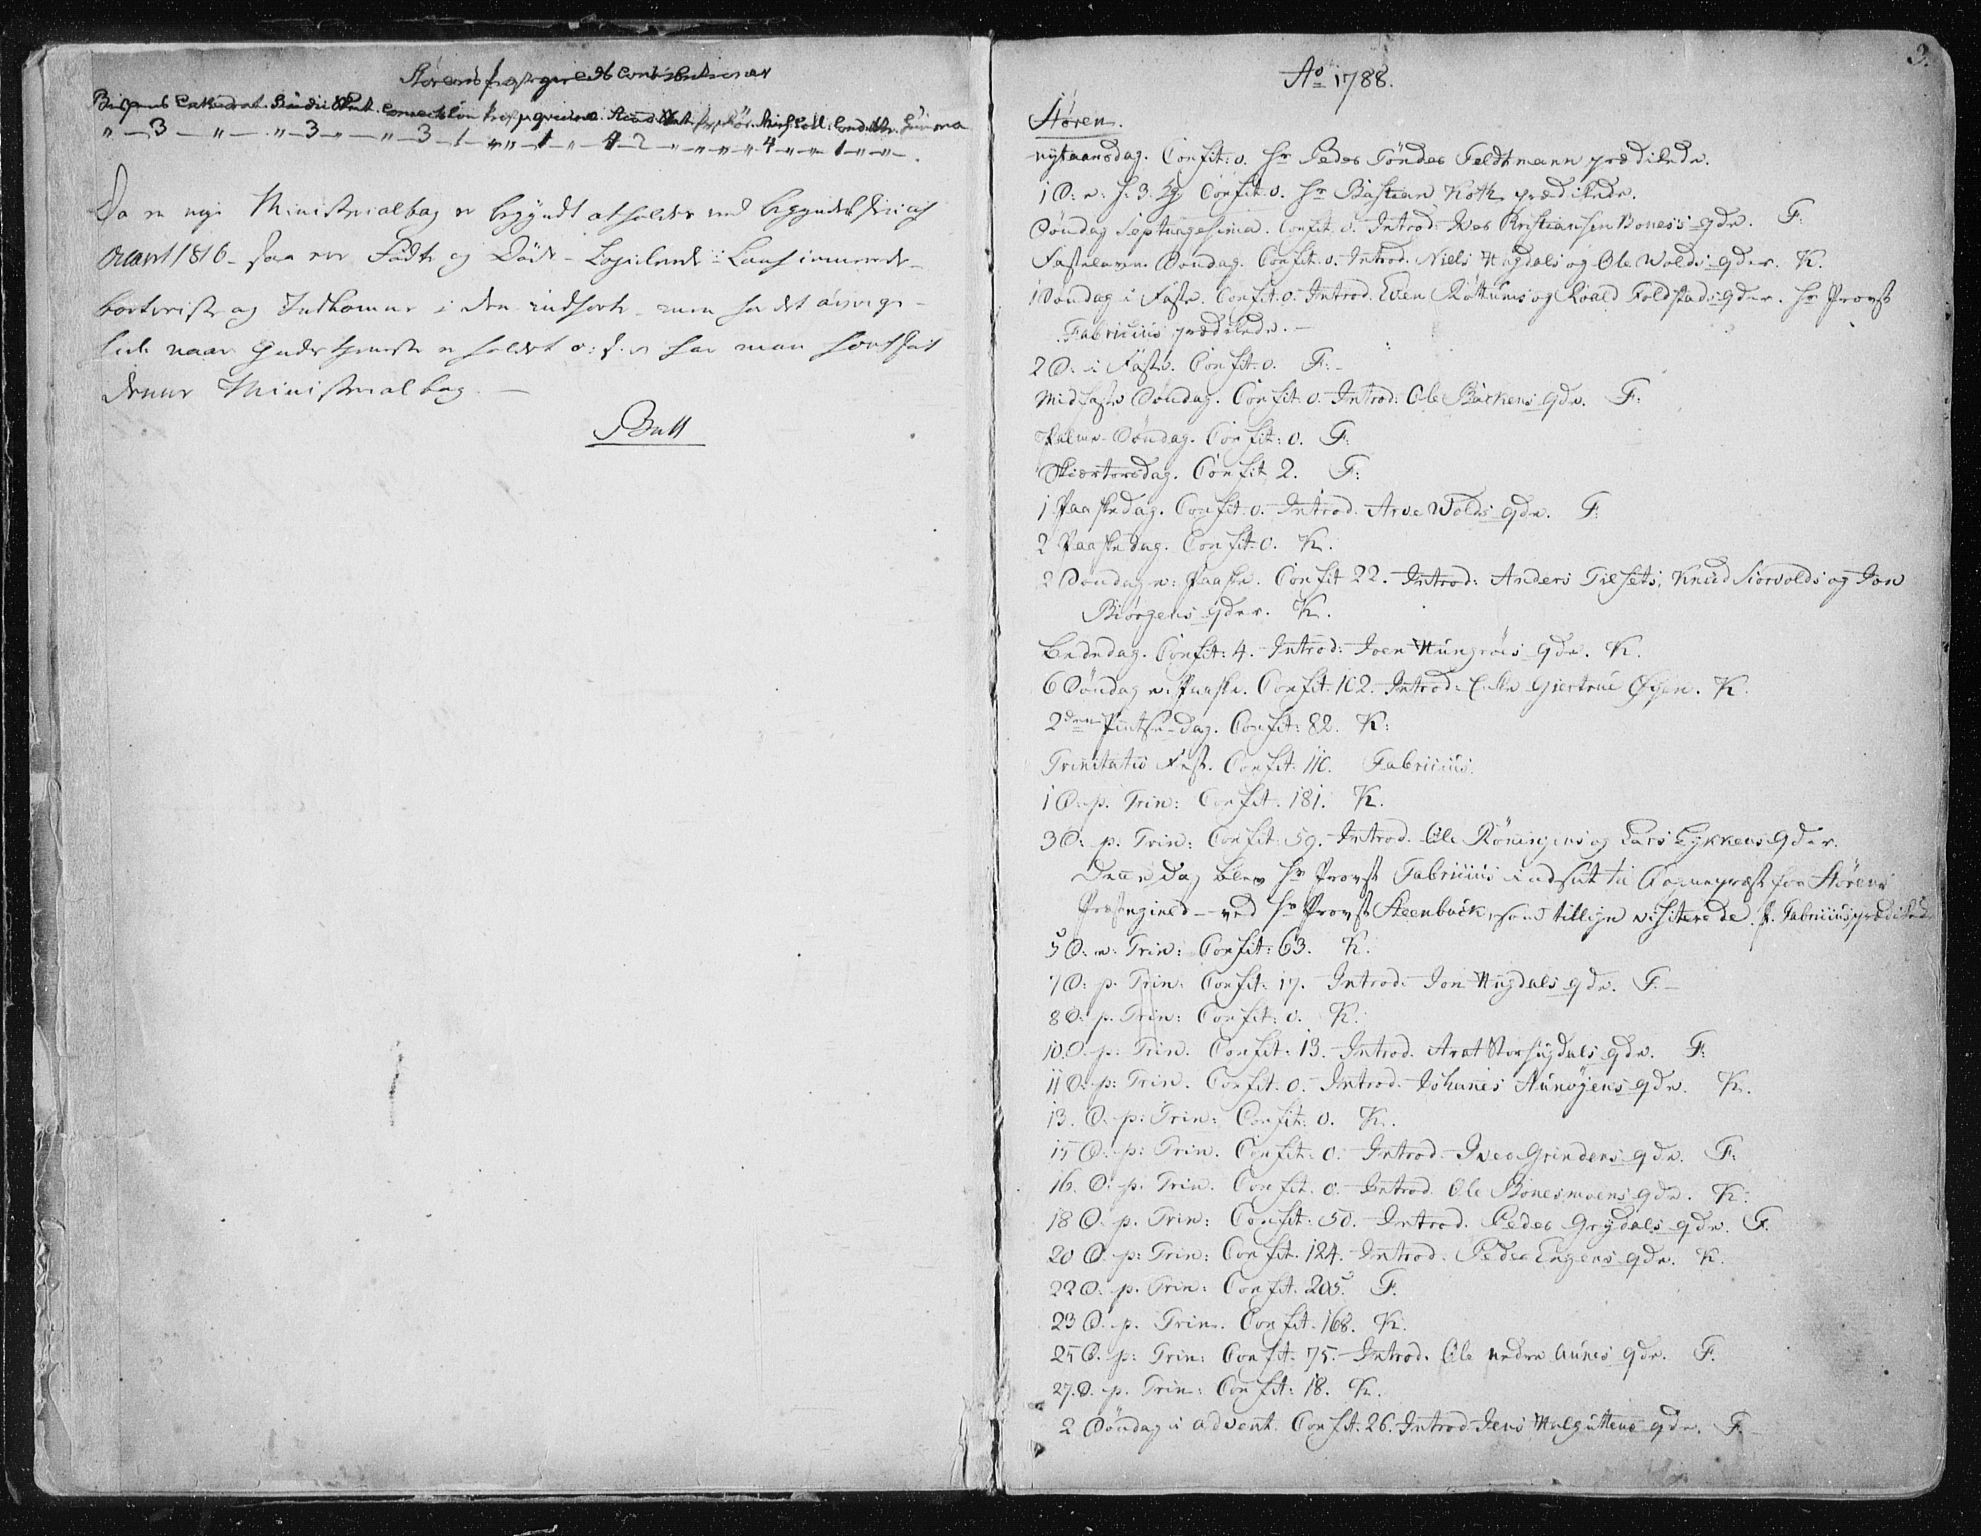 Størens præstegields Contributioner
Bispens Cathedral. Studii Skat.
" — 3 — " — " — 3 — " — " — 3
Da en nye Ministerialbog er begyndt at holdes ved begyndelsen af
Aaret 1816 — saa ere Fødte og Døde —
bortreiste og Indkomne i den indførte — men for det øvrige —
naar Gudstieneste er holdet o: s: v: har man fortsat
denne Ministerialbog. —
Bull
3.
Ao 1788.
Støren.
nytaarsdag. Confit: 0. Hr Peder Tønder Feldtmann prædikede.
1 S: e: H. 3. K. Confit. 0. Hr Bastian Koth prædikede.
Søndag Septuagesima. Confit. 0. Introd: Iver Kristiansen Bones's qde. F:
Fastelavns Søndag. Confit: 0. Introd. Niels Hugdals og Ole Wolds qder. K.
1 Søndag i Faste. Confit: 0. Introd. Even Rottums og Roald Foldstads qder. Hr Provst
Fabricius prædikede. —
2 S: i Faste. Confit: 0. F: -
Midfaste Søndag. Confit: 0. Introd: Ole Bakkens qde. F:
Palme-Søndag. Confit: 0. F:
Skiærtorsdag. Confit 2. F:
1 Paaskedag. Confit: 0. Introd. Arve Wolds qde. F:
2 Paaskedag. Confit: 0. K.
2 Søndag e: Paaske. Confit 22. Introd: Anders Tilsets, Knud Siorvolds og Jon
Biørgens qder. K.
Bededag. Confit: 4. Introd: Joen Hungrøis qde. K.
6 Søndag e: Paaske. Confit. 102. Introd: Giertrue Øyen. K.
2den Pintse-dag. Confit: 82. K:
Trinitatis Fest. Confit. 110. Fabricius.
1 S. p. Trin: Confit. 181. K.
3 S. p: Trin: Confit: 59. Introd. Ole Røningens og Lars Lykkens qder.
Denne Dag blev Hr Provst Fabricius indsat til Sognepræst for Størens
Præstegield — ved Hr Provst Steenbuck, som tillige visiterede. P. Fabricius prædikede
5 S: e: Trin: Confit: 63. K.
7 S: p. Trin: Confit: 17. Introd: Jon Hugdals qde. F. —
8 S. p. Trin: Confit: 0. K.
10. S. p: Trin. Confit: 13. Introd. Arnt Storhugdals qde. F:
11 S. p: Trin. Confit. 0. Introd. Johannes Aunøjens qde. K.
13. S. p: Trin: Confit: 0. K.
15 S. p: Trin. Confit: 0. Introd. Iver Grindens qde. F:
16. S. p. Trin. Confit. 0. Introd. Ole Bonesmoens qde. K:
18 S. p. Trin: Confit: 50. Introd. Peder Grydals qde. F.
20 S. p: Trin: Confit. 124. Introd. Peder Engens qde. K.
22 S. p. Trin: Confit. 205. F.
23 S. p. Trin. Confit. 168. K.
25 S. p: Trin: Confit. 75. Introd. Ole nedre Aunes qde. F.
27. S. p. Trin: Confit: 18. K.
2 Søndag i advent. Confit. 26. Introd. Jens Halguttens qde. F. —